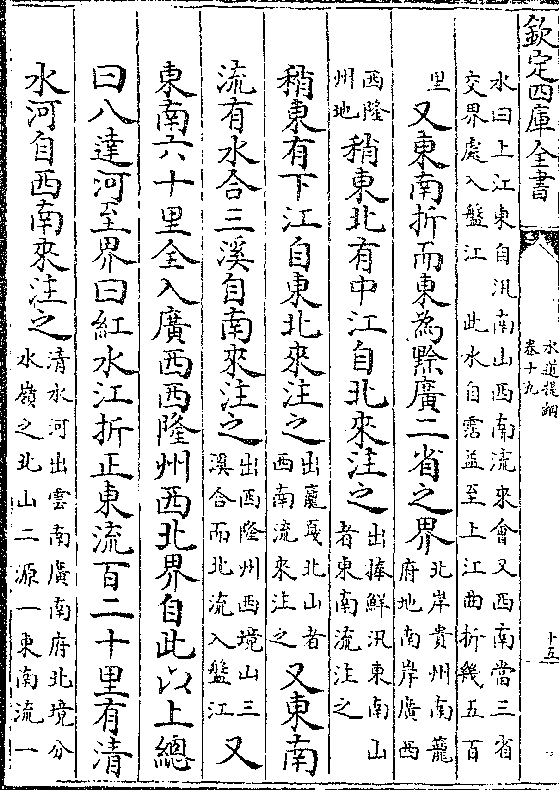 欽定四庫全書
水道提綱
卷十九
十五
水曰上江東自汛南山西南流來會又西南當三省
交界處入盤江 此水自霑益至上江曲折幾五百
里 又東南折而東為黔廣二省之界 北岸貴州南籠
府地南岸廣西
西隆
州地 稍東北有中江自北來注之 出捧鮮汛東南山
者東南流注之
稍東有下江自東北來注之 出巃戛北山者
西南流來注之 又東南
流有水合三溪自南來注之 出西隆州西境山三
溪合而北流入盤江 又
東南六十里全入廣西西隆州西北界自此以上總
曰八達河至界曰紅水江折正東流百二十里有清
水河自西南來注之 清水河出雲南廣南府北境分
水嶺之北山二源一東南流一